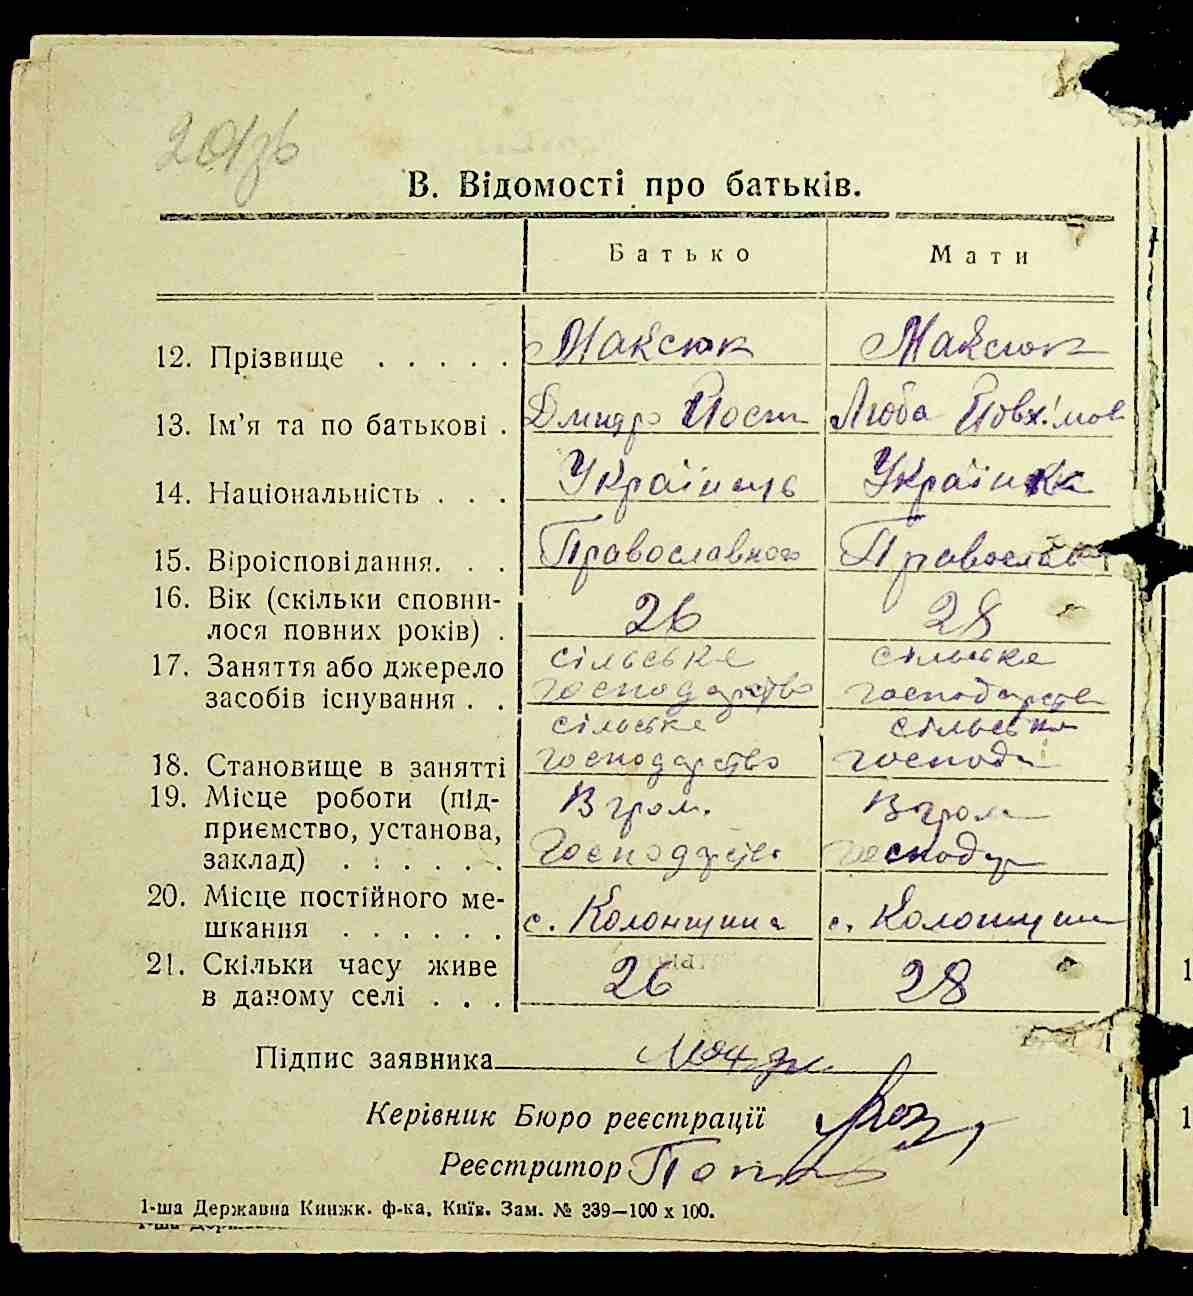 В. Відомості про батьків.
Батько Мати
12. Прізвище . . . . . Максюк Максюк
13. Ім'я та по батькові . Дмитро Йост Люба Йовхімов
14. Національність . . . Українць Українка
15. Віроісповідання. . . Православного Православ
16. Вік (скільки сповни-
лося повних років) . 26 28
17. Заняття або джерело сільське сільське
засобів існування . . господарство господарств
сільське сільське
18. Становище в занятті господарство господа
19. Місце роботи (під- В гром. В гром
приємство, установа,
заклад) . . . . . . Господарство господар
20. Місце постійного ме-
шкання . . . . . . с. Колонщина с. Колонщина
21. Скільки часу живе
в даному селі . . . 26 28
Підпис заявника
Керівник Бюро реєстрації
Реєстратор
1-ша Державна Книжк. ф-ка, Київ. Зам. № 339—100 х 100.